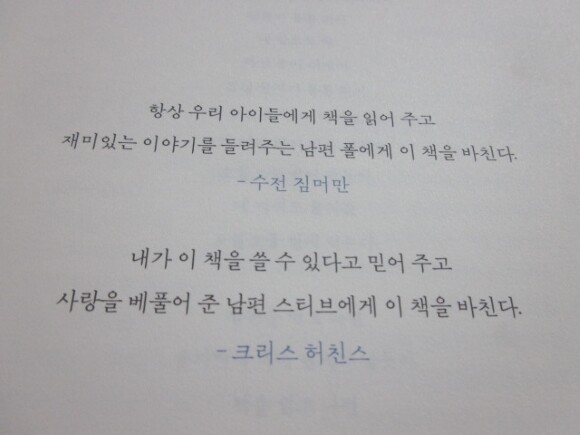 항상 우리 아이들에게 책을 읽어 주고
재미있는 이야기를 들려주는 남편 폴에게 이 책을 바친다.
- 수전 짐머만
내가 이 책을 쓸 수 있다고 믿어 주고
사랑을 베풀어 준 남편 스티브에게 이 책을 바친다.
- 크리스 허친스